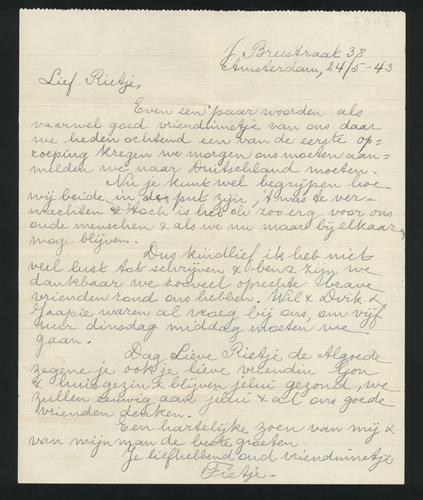 J. Breestraat 38
Amsterdam, 24/5-43
Lief Rietje,
Even een paar woorden als
vaarwel goed vriendinnetje van ons daar
we heden ochtend een van de eerste op=
roeping kregen we morgen ons moeten aan=
melden we naar Duitschland moeten.
Nu je kunt wel begrijpen hoe
wij beide in de put zijn, 't was te ver=
wachten & toch is het oh zoo erg voor ons
oude menschen & als we nu maar bij elkaar
mogen blijven.
Dus kindlief ik heb niet
veel lust tot schrijven & ben & zijn we
dankbaar we zooveel oprechte & brave
vrienden rond ons hebben. Wil & Dirk &
Jaapie waren al vroeg bij ons, om vijf
uur dinsdag middag moeten we
gaan.
Dag Lieve Rietje de Algoede
zegene je ook je lieve vriendin
& huisgezin & blijven jelui gezond, we
zullen eeuwig aan jelui & al ons goede
vrienden denken.
Een hartelijke zoen van mij &
van mijn man de beste groeten
Je liefhebbend oud vriendinnetje
Fietje